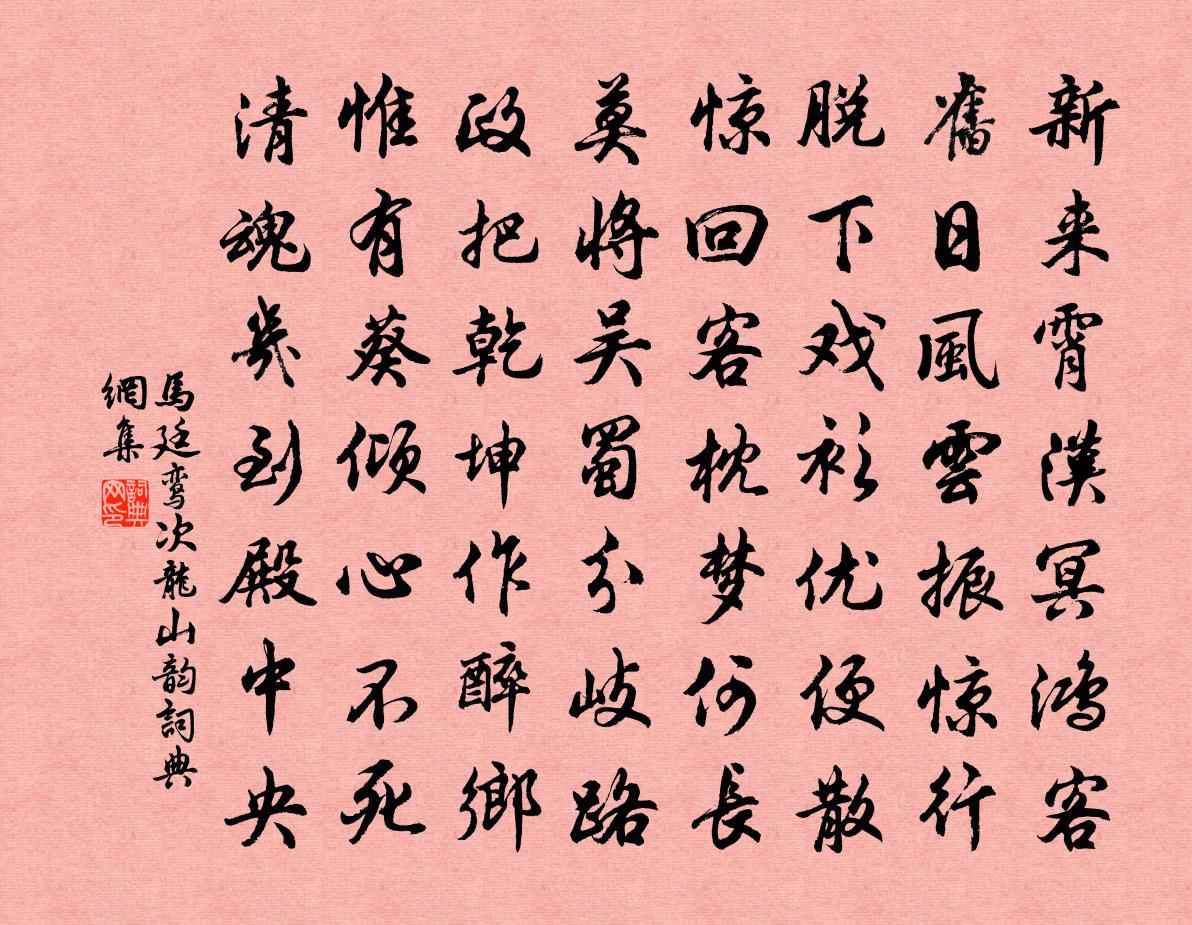 新来霄漢冥鴻客
舊日風雲振惊行
脱下戏衫优便散
惊回客枕梦何長
莫将吴蜀分歧路
政把乾坤作醉鄉
惟有葵倾心不死
清魂幾到殿中央
馬廷鸾次龍山韵詞典
網集
詞典
网印